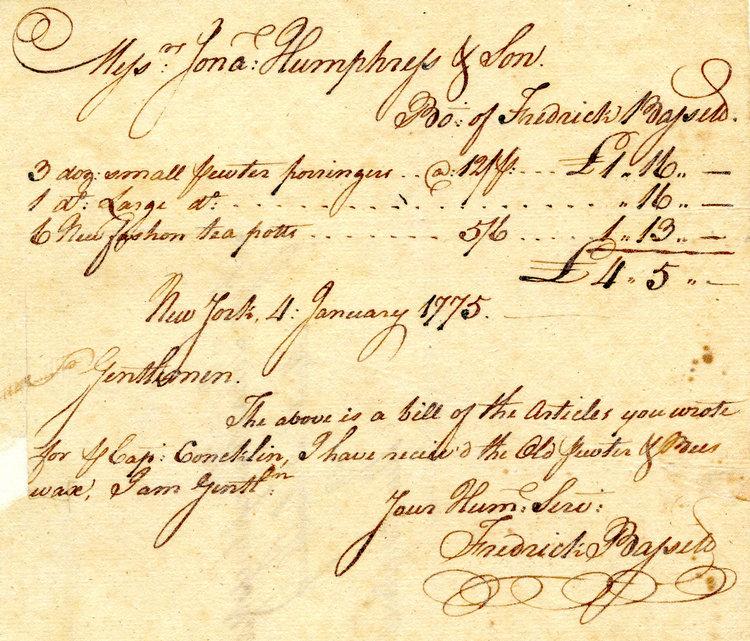 Messrs. Jona: Humphreys & Son.
Bo: of Fredrick Bassett.
3 doz: small pewter porringers .. @: 12/ p: .... £1 " 16 " —
1 do: Large do: .................... " 16 " —
6 New fashon tea potts .......... 5/6 .... 1 " 13 " —
£ 4 " 5 " —
New York, 4: January 1775.
Gentlemen.
The above is a bill of the Articles you wrote
for p Cap: Concklin, I have receiv'd the Old Pewter & Bees
wax, I am Gentln:
Your Hum: Serv:
Fredrick Bassett